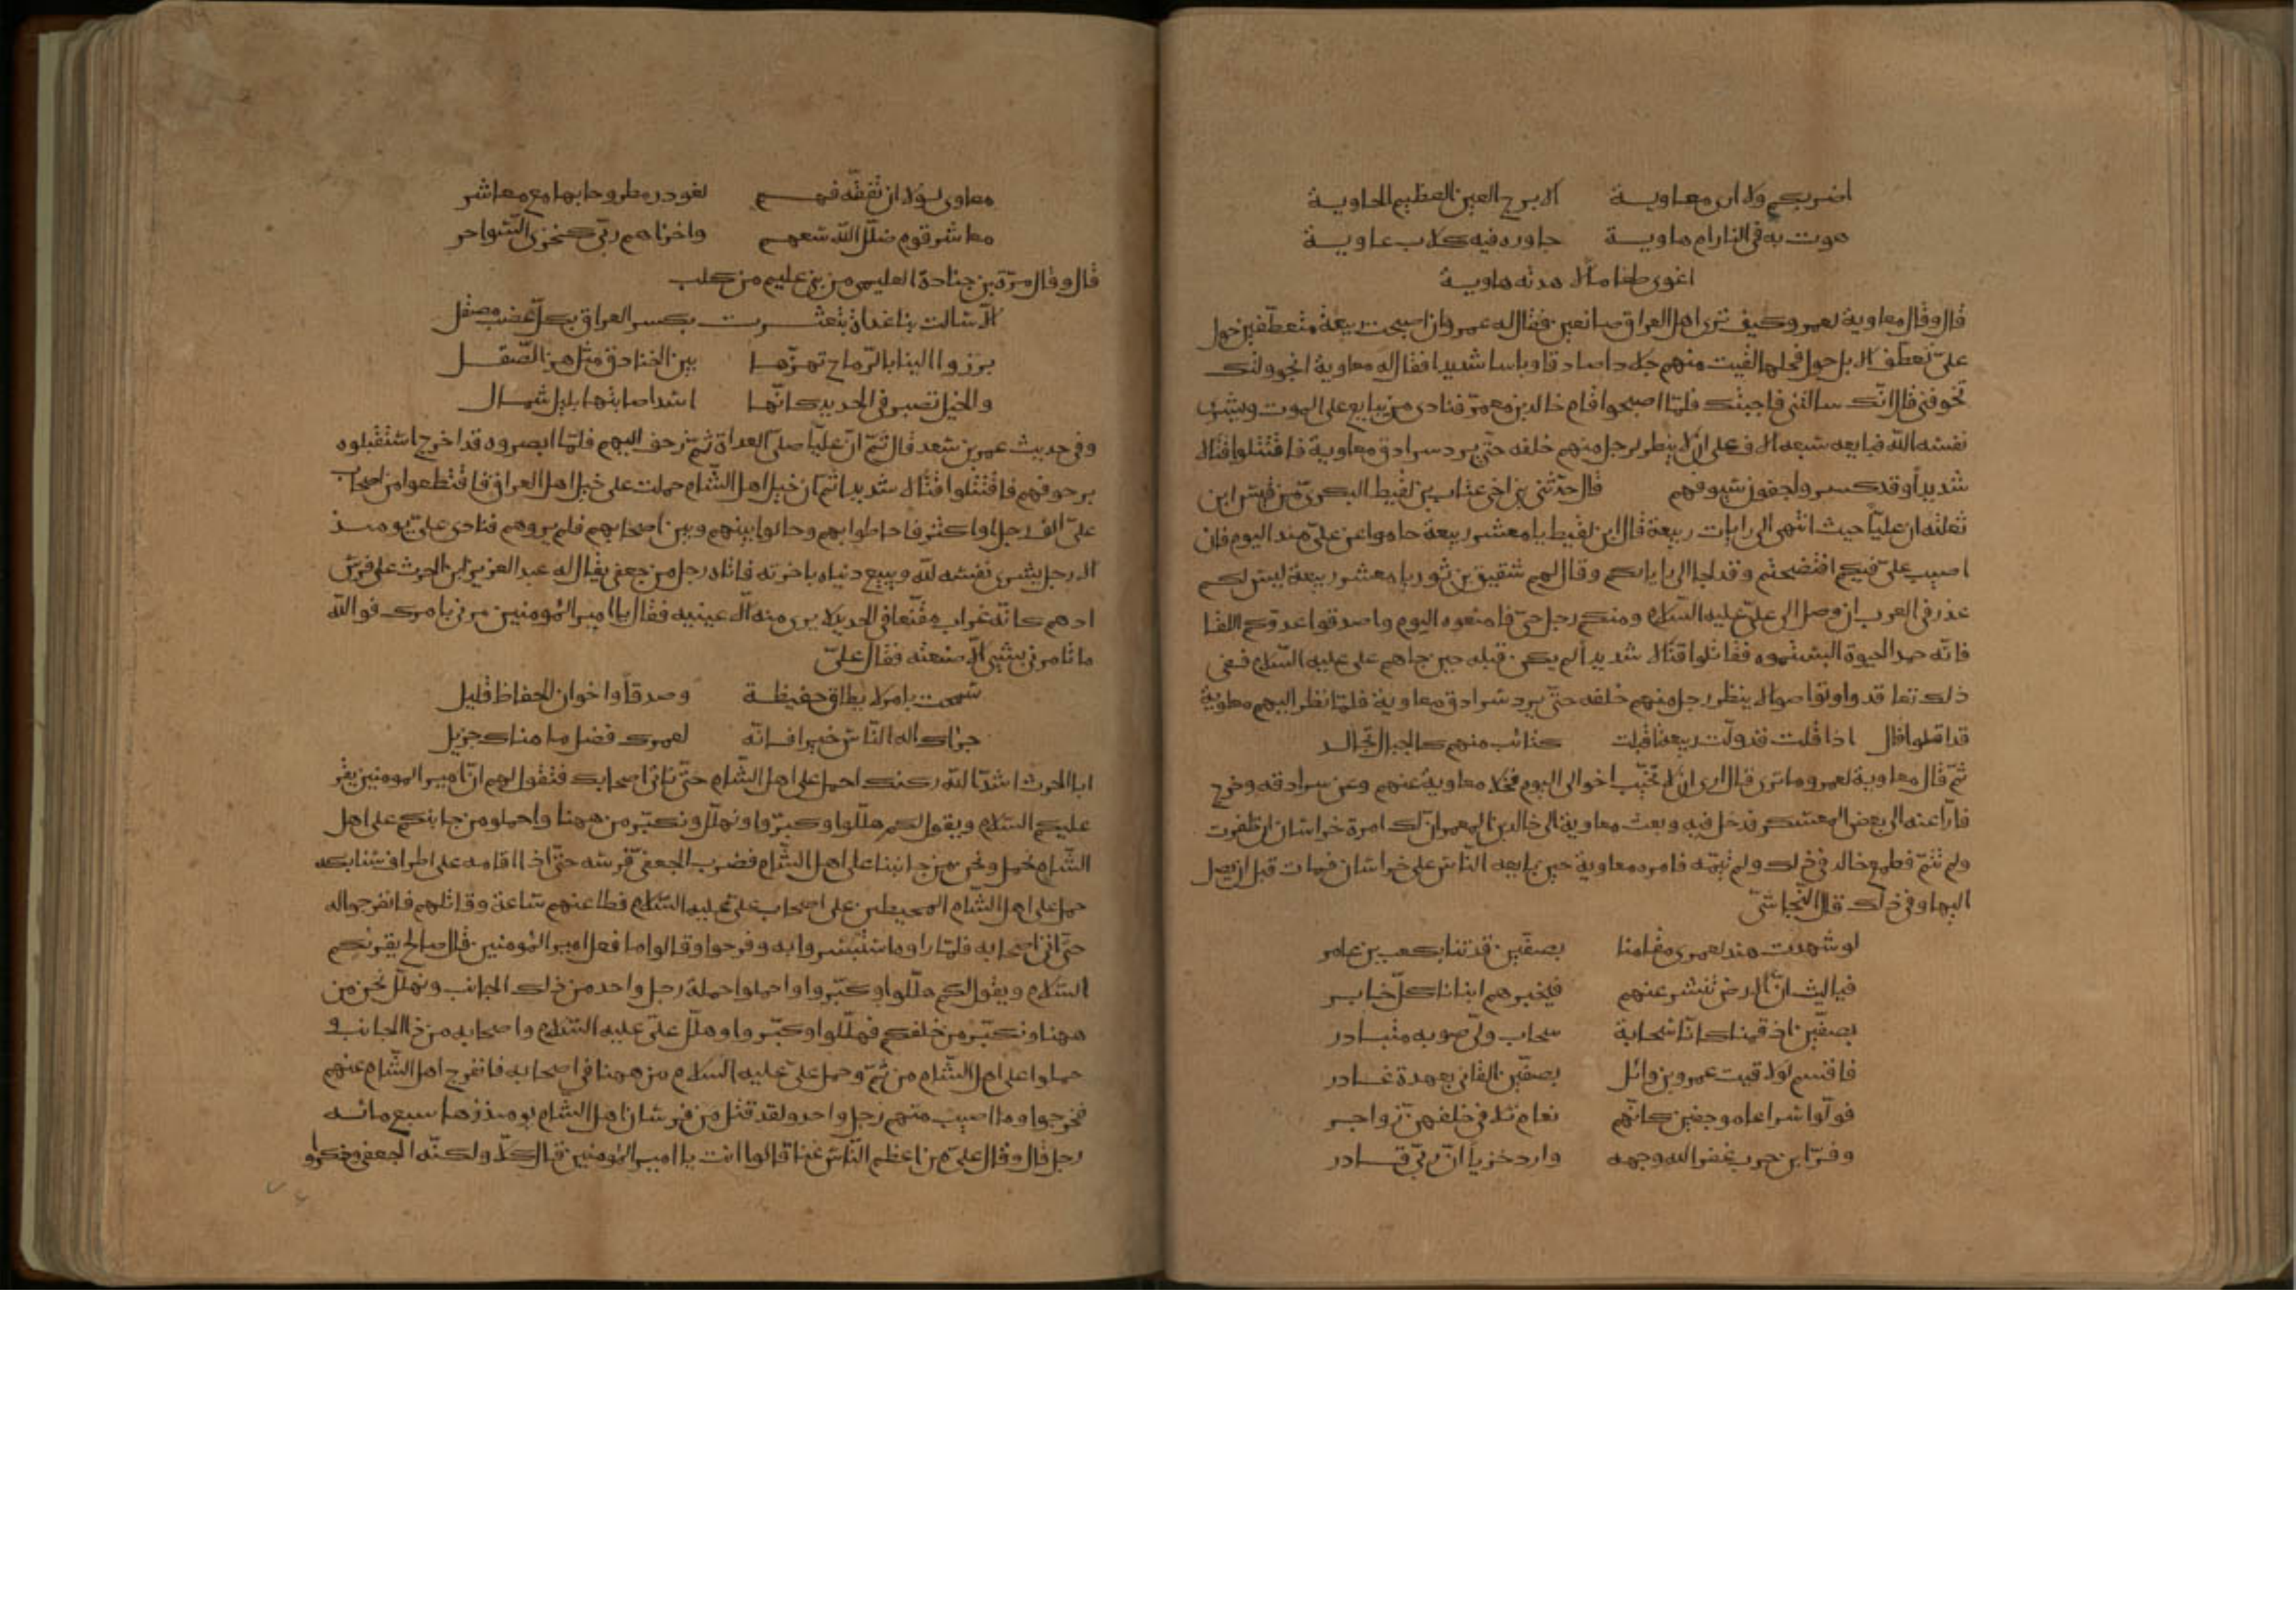 اضربهم ولا ارى معاوية الابرج العين العظيم الحاوية
هوت به فى النار ام هاوية جاوره فيه كلاب عاوية
اغوى طغاما لا هدته هاوية
قال وقال معاوية لعمرو كيف ترى اهل العراق صانعين فقال له عمرو ان اصبحت ربيعة متعطفين حول
على تعطف الابل حول فحلها لقيت منهم جلادا صادقا وباسا شديدا فقال له معاوية ابخوولتك
تخوفنى قال انك سالتنى فاجبتك فلما اصبحوا قام خالد بن معمر فنادى من يبايع على الموت ويشرى
نفسه لله فبايعه سبعه الاف على ان لا ينظر رجل منهم خلفه حتى يرد سرادق معاوية فاقتتلوا قتالا
شديدا وقد كسروا جفون سيوفهم قال حدثنى بن اخى عتاب بن لقيط البكرى من قيس ابن
ثعلبه ان عليا حيث انتهى الى رايات ربيعة قال ابن لقيط يا معشر ربيعة حاموا عن على منذ اليوم فان
اصيب على فيكم افتضحتم وقد لجا الى راياتكم وقال لهم شقيق بن ثور يا معشر ربيعة ليس لكم
عذر فى العرب ان وصل الى على عليه السلام ومنكم رجل حى فامنعوه اليوم واصدقوا عدوكم اللقا
فانه حمد الحيوة البستموه فقاتلوا قتالا شديدا لم يكن قبله حين جاهم على عليه السلام ففى
ذلك تعاقدوا وتواصوا الا ينظر رجل منهم خلفه حتى يرد سرادق معاوية فلما نظر اليهم معاوية
قد اقبلوا قال اذا قلت قد ولت ربيعة اقبلت كتائب منهم كالجبال تجالد
ثم قال معاوية لعمرو ما ترى قال ارى ان لا تحنث اخوالى اليوم فخلا معاوية عنهم وعن سرادقه وخرج
فارا عنه الى بعض المعسكر فدخل فيه وبعث معاوية الى خالد بن المعمر ان لك امرة خراسان ان ظفرت
ولم تتم فطمع خالد فى ذلك ولم يتمه فامره معاوية حين بايعه الناس على خراسان فمات قبل ان يصل
اليها وفى ذلك قال النجاشى
لو شهدت هند لعمرى مقامنا بصفين فدتنا بكعب بن عامر
فيا ليث ان الارض تنشر عنهم فيخبرهم انبانا كل خابر
بصفين اذ قمنا كانا سحابة سحاب ولى صوبه متبادر
فاقسم لو لاقيت عمرو بن وائل بصفين القانى بعهدة غادر
فولوا سراعا موجفين كانهم نعام تلافى خلفهن زواجر
وفر ابن حرب عفر الله وجهه وارد خزيا ان ربى قادر
معاوى لولا ان تفقه فهم لغودر مطروحا بها مع معاشر
معاشر قوم ضلل الله سعيهم واخزاهم ربى كخزى السواحر
قال وقال مرة بن جنادة العليمى من بنى عليم من كلب
الا سالت بنا غداة تبعثرت بكسر العراق بكل عضب مصقل
برزوا الينا بالرماح تهزها بين الخنادق مثل هز الصقل
والخيل تضبر فى الحديد كانها اسد اصابتها بليل شمال
وفى حديث عمر بن سعد قال ثم ان عليا صلى الغداة ثم زحف اليهم فلما ابصروه قد اخرج استقبلوه
بزحوفهم فاقتتلوا قتالا شديدا ثم ان خيل اهل الشام حملت على خيل اهل العراق فاقتطعوا من اصحاب
على الف رجل او اكثر فاحاطوا بهم وحالوا بينهم وبين اصحابهم فلم يروهم فنادى على يومئذ
الا رجل يشرى نفسه لله ويبيع دنياه باخرته فاتاه رجل من جعفى يقال له عبد العزيز ابن الحرث على فرس
ادهم كانه غراب مقنعا فى الحديد لا يرى منه الا عينيه فقال يا امير المومنين مرنى بامرك فوالله
ما تامرنى بشئ الا صنعته فقال على
سمحت بامر لا يطاق حفيظة وصدقا واخوان الحفاظ قليل
جزاك اله الناس خيرا فانه لعمرك فضل ما هناك جزيل
ابا الحرث اشد الله ركنك احمل على اهل الشام حتى تاتى اصحابك فتقول لهم ان امير المومنين يقر
عليكم السلام ويقول لكم هللوا وكبروا ونهلل ونكبر من ههنا واحملو من جانبكم على اهل
الشام نحمل ونحن من جانبنا على اهل الشام فضرب الجعفى فرسه حتى اذا اقامه على اطراف سنابكه
حمل على اهل الشام المحيطين على اصحاب على عليه السلام فطاعنهم ساعة وقاتلهم فانفرجوا له
حتى اتى اصحابه فلما راوه استبشروا به وفرحوا وقالوا ما فعل امير المومنين قال صالح يقرئكم
السلام ويقول لكم هللوا وكبروا واحملوا حملة رجل واحد من ذلك الجانب ونهلل نحن من
ههنا ونكبر من خلفكم فهللوا وكبروا وهلل على عليه السلام واصحابه من ذا الجانب و
حملوا على اهل الشام من ثم وحمل على عليه السلام من ههنا فى اصحابه فانفرج اهل الشام عنهم
فخرجوا وما اصيب منهم رجل واحد ولقد قتل من فرسان اهل الشام يومئذ زها سبع مائه
رجل قال وقال على من اعظم الناس غنا قالوا انت يا امير المومنين قال كلا ولكنه الجعفى وذكروا